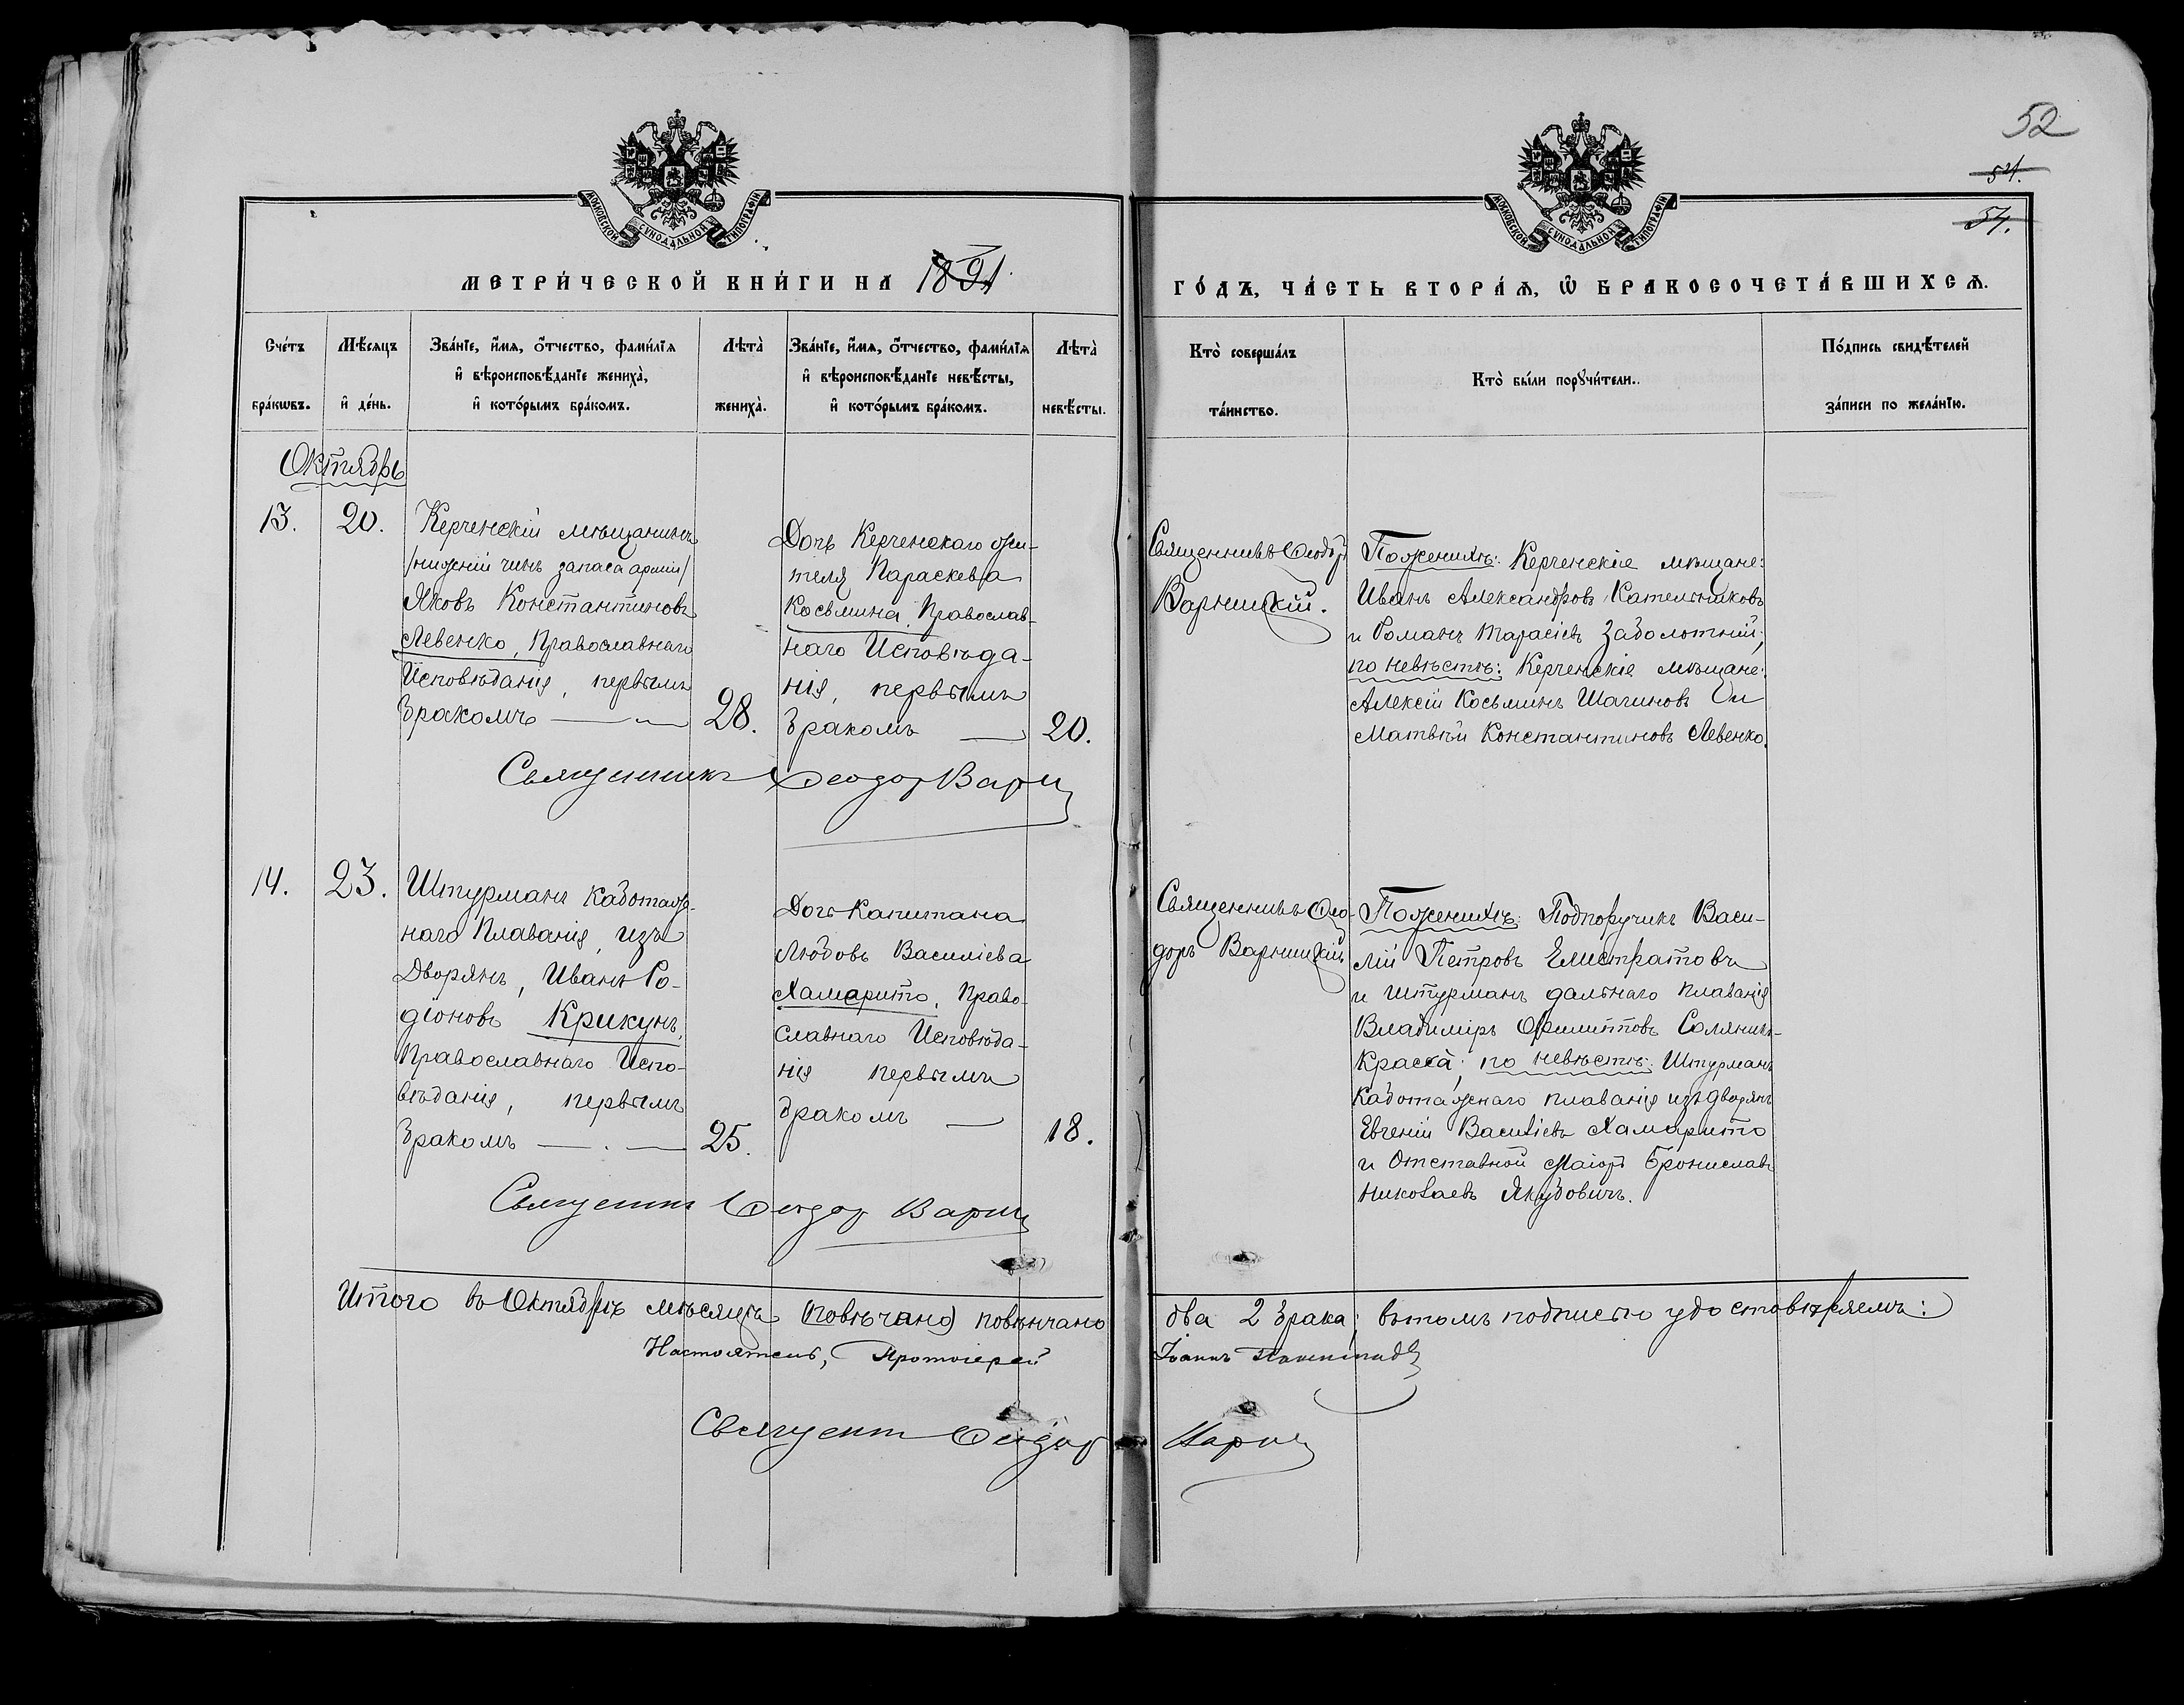 52
54.
54.
МОСКОВСКОЙ СУНОДАЛЬНОЙ ТИПОГРАФІИ
МОСКОВСКОЙ СУНОДАЛЬНОЙ ТИПОГРАФІИ
МЕТРИ́ЧЕСКОЙ КНИ́ГИ НА 1891
ГО́ДЪ, ЧА́СТЬ ВТОРА́Ѧ, Ѽ БРАКОСОЧЕТА́ВШИХСѦ.
Сче́тъ
бра́кѡвъ.
Мѣ́сяцъ
и҆ де́нь.
Зва́нїе, и҆́мѧ, о҆́тчество, фами́лїѧ
и҆ вѣроисповѣ́данїе жениха̀,
и҆ кото́рымъ бра́комъ.
Лѣта̀
жениха̀.
Зва́нїе, и҆́мѧ, о҆́тчество, фами́лїѧ
и҆ вѣроисповѣ́данїе невѣ́сты,
и҆ кото́рымъ бра́комъ.
Лѣта̀
невѣ́сты.
Кто̀ соверша́лъ
та́инство.
Кто̀ бы́ли порꙋчи́тели.
По́дпись свидѣ́телей
за́писи по жела́нїю.
Октябрь
13.
20.
Керченскій мѣщанинъ
/нижній чинъ запаса арміи/
Яковъ Константиновъ
Левенко, Православнаго
Исповѣданія, первымъ
бракомъ
28.
Дочь Керченскаго жи-
теля Параскева
Косьмина, Православ-
наго Исповѣда-
нія, первымъ
бракомъ
20.
Священникъ Ѳеодоръ
Варницкій.
По женихѣ: Керченскіе мѣщане:
Иванъ Александровъ Кательниковъ
и Романъ Тарасіевъ Заболотній;
по невѣстѣ: Керченскіе мѣщане:
Алексій Косьминъ Шагиновъ и
Матвѣй Константиновъ Левенко.
Священникъ Ѳеодор Варниц
14.
23.
Штурманъ каботаж-
наго Плаванія, изъ
Дворянъ, Иванъ Ро-
діоновъ Крикунъ,
Православнаго Испо-
вѣданія, первымъ
бракомъ
25.
Дочь Капитана
Любовь Василіева
Ламарито, Право-
славнаго Исповѣда-
нія первымъ
бракомъ
18.
Священникъ Ѳео-
доръ Варницкій
По женихѣ: Подпоручикъ Васи-
лій Петровъ Елистратовъ
и штурманъ дальнаго плаванія
Владиміръ Филипповъ Соляникъ-
Красса; по невѣстѣ: Штурманъ
каботажнаго плаванія изъ дворянъ
Евгеній Василіевъ Ламарито
и Отставной Маіоръ Брониславъ
Николаевъ Якубовичъ.
Ѳеодор Варниц
Итого въ Октябрѣ мѣсяцѣ (повѣчано) повѣнчано два 2 брака; въ томъ подписью удостовѣряемъ:
Настоятель, Протоіерей Іоаннъ
Ѳеодор Варниц